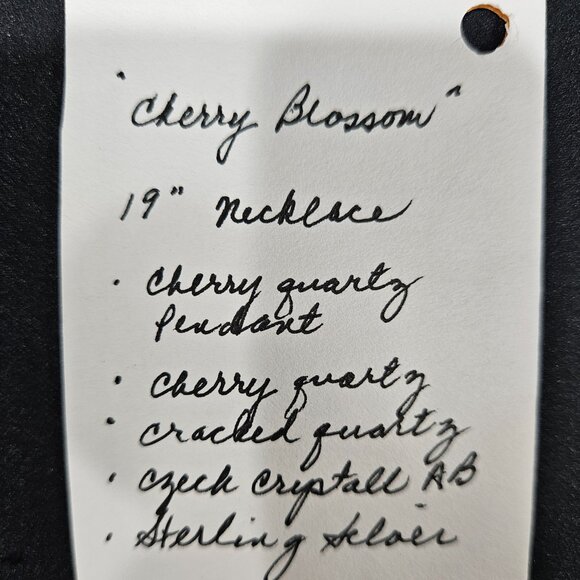 "Cherry Blossom"
19" Necklace
• Cherry quartz
Pendant
• Cherry quartz
• Cracked quartz
• Czech Crystall AB
• Sterling Silver